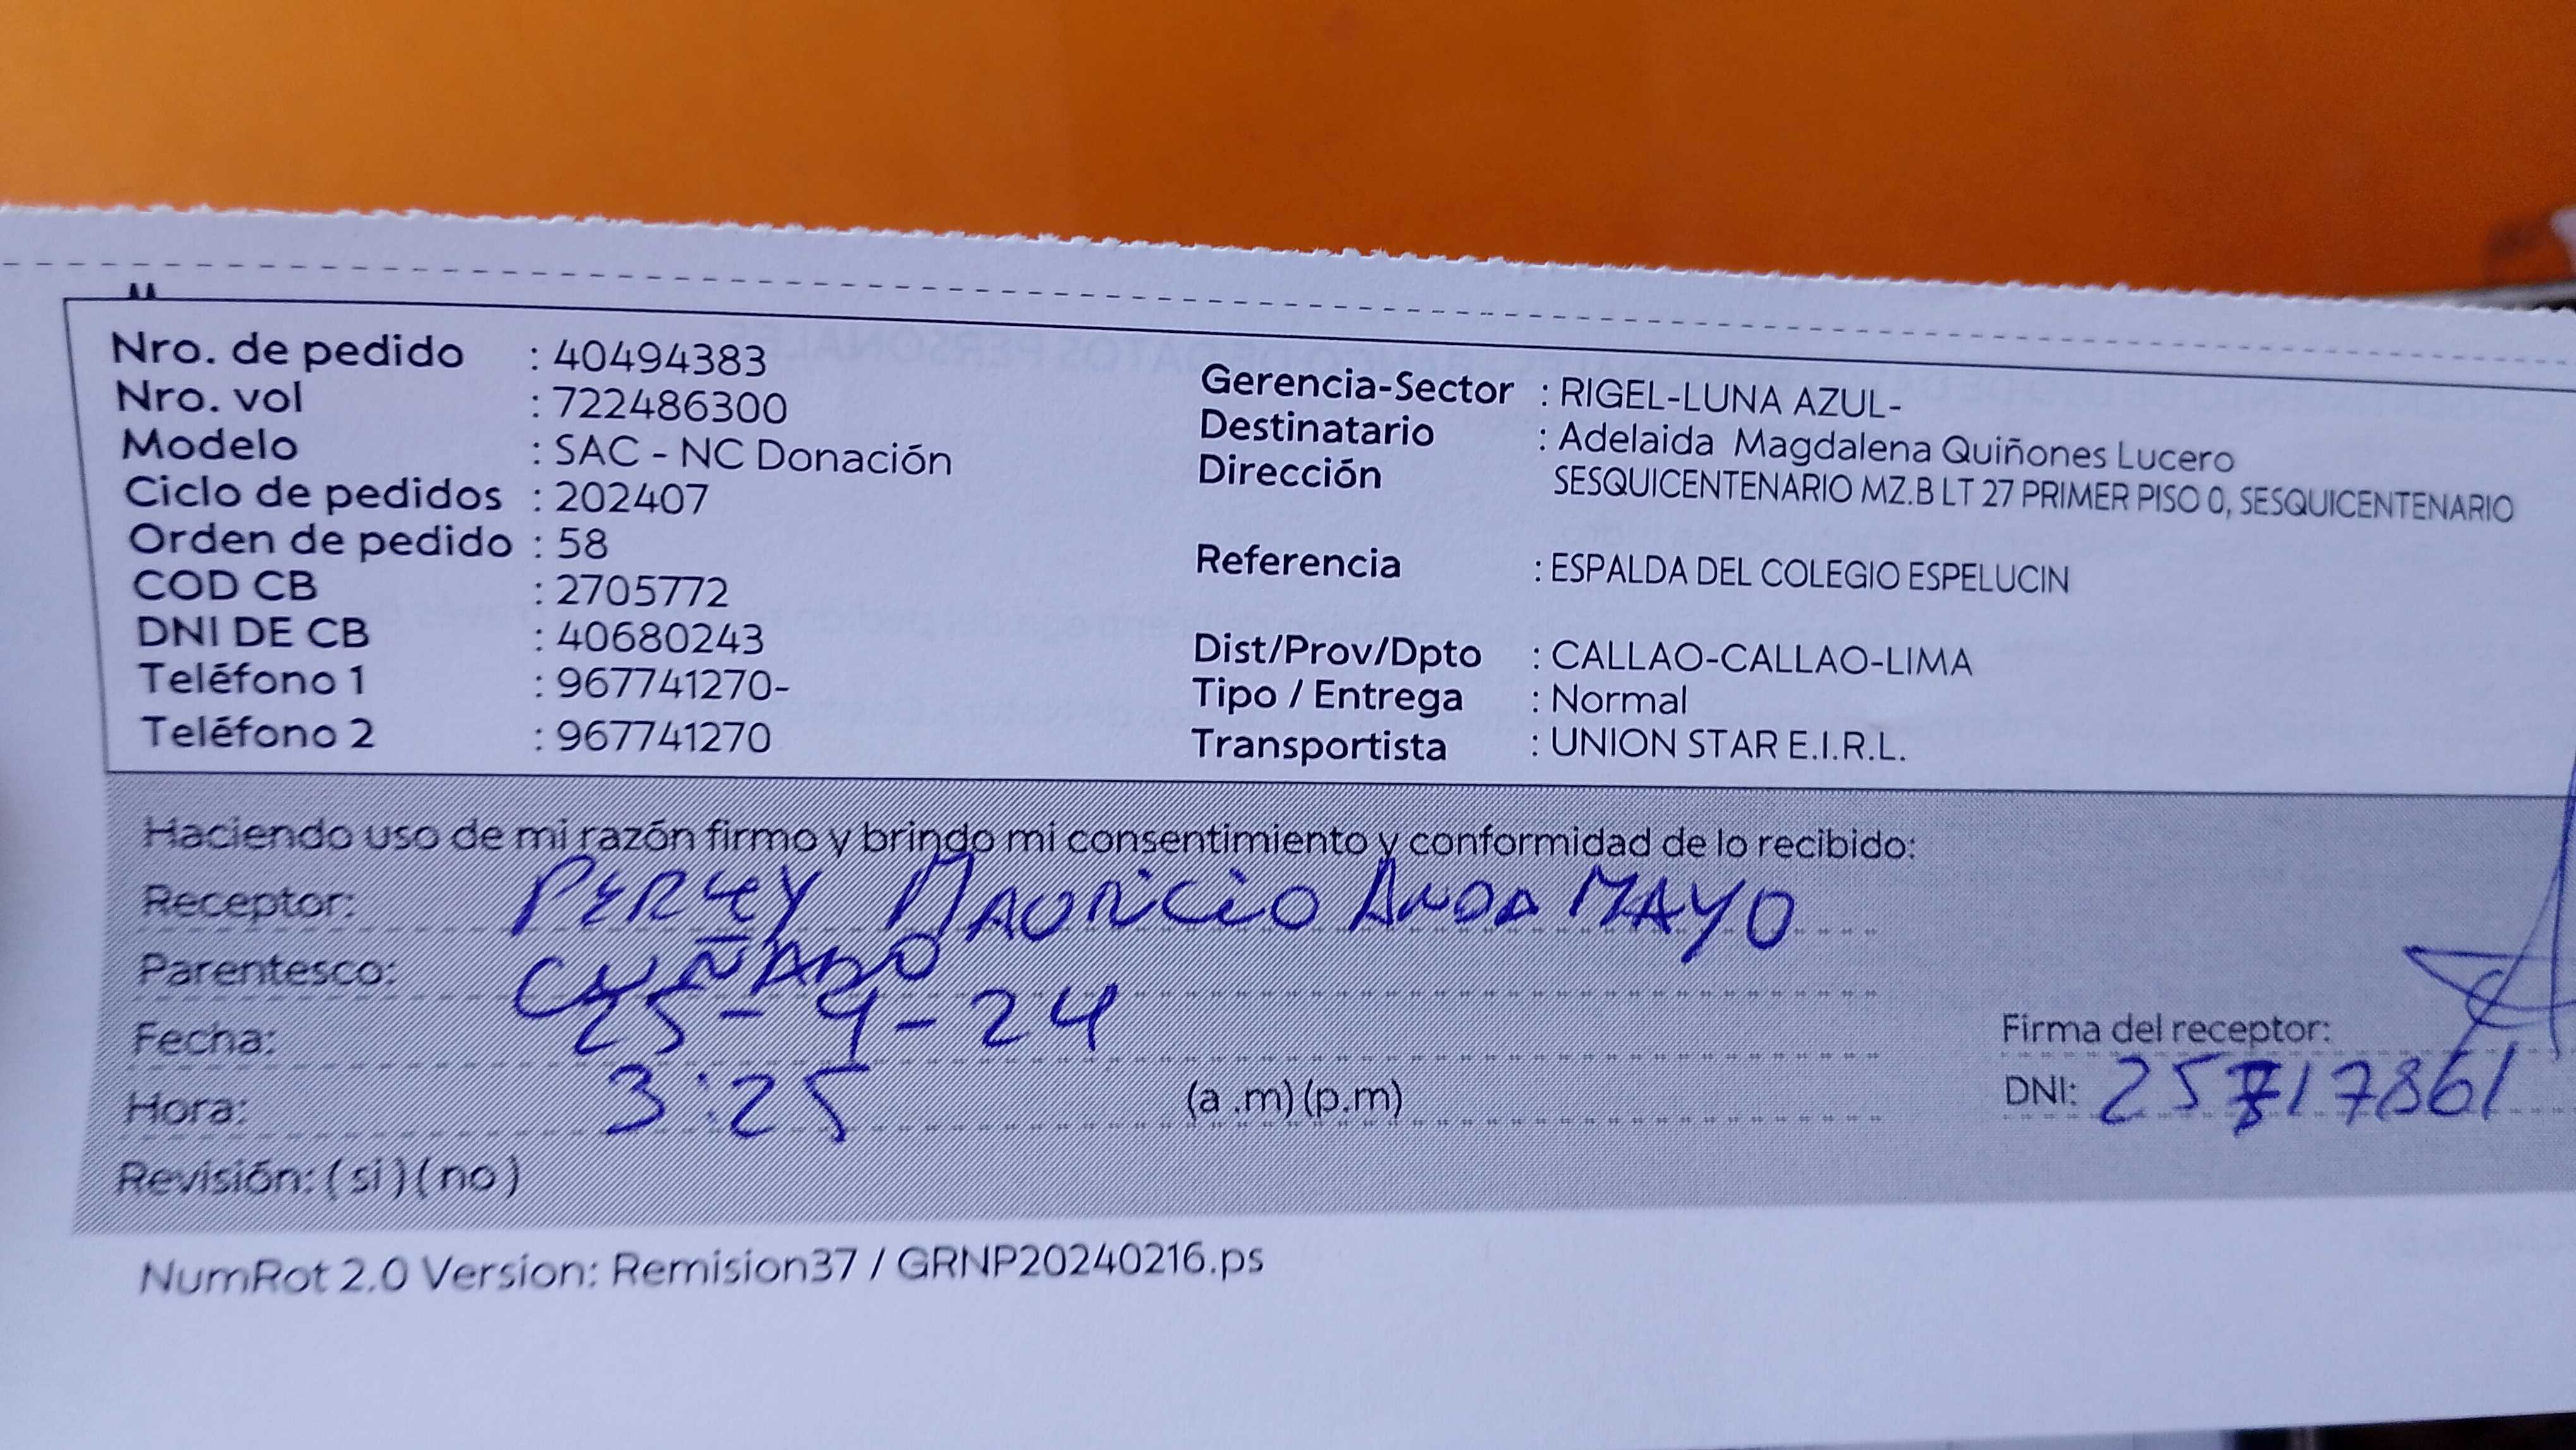 Nro. de pedido : 40494383
Nro. vol : 722486300
Modelo : SAC - NC Donación
Ciclo de pedidos : 202407
Orden de pedido : 58
COD CB : 2705772
DNI DE CB : 40680243
Teléfono 1 : 967741270-
Teléfono 2 : 967741270
Gerencia-Sector : RIGEL-LUNA AZUL-
Destinatario : Adelaida Magdalena Quiñones Lucero
Dirección SESQUICENTENARIO MZ.B LT 27 PRIMER PISO 0, SESQUICENTENARIO
Referencia : ESPALDA DEL COLEGIO ESPELUCIN
Dist/Prov/Dpto : CALLAO-CALLAO-LIMA
Tipo / Entrega : Normal
Transportista : UNION STAR E.I.R.L.
Haciendo uso de mi razón firmo y brindo mi consentimiento y conformidad de lo recibido:
Receptor: MAURICIO MAYO
Parentesco: CUÑADO
Fecha: 25-4-24
Hora: 3:25 (a .m) (p.m)
Revisión: ( si ) ( no )
Firma del receptor:
DNI: 25717861
NumRot 2.0 Version: Remision37 / GRNP20240216.ps